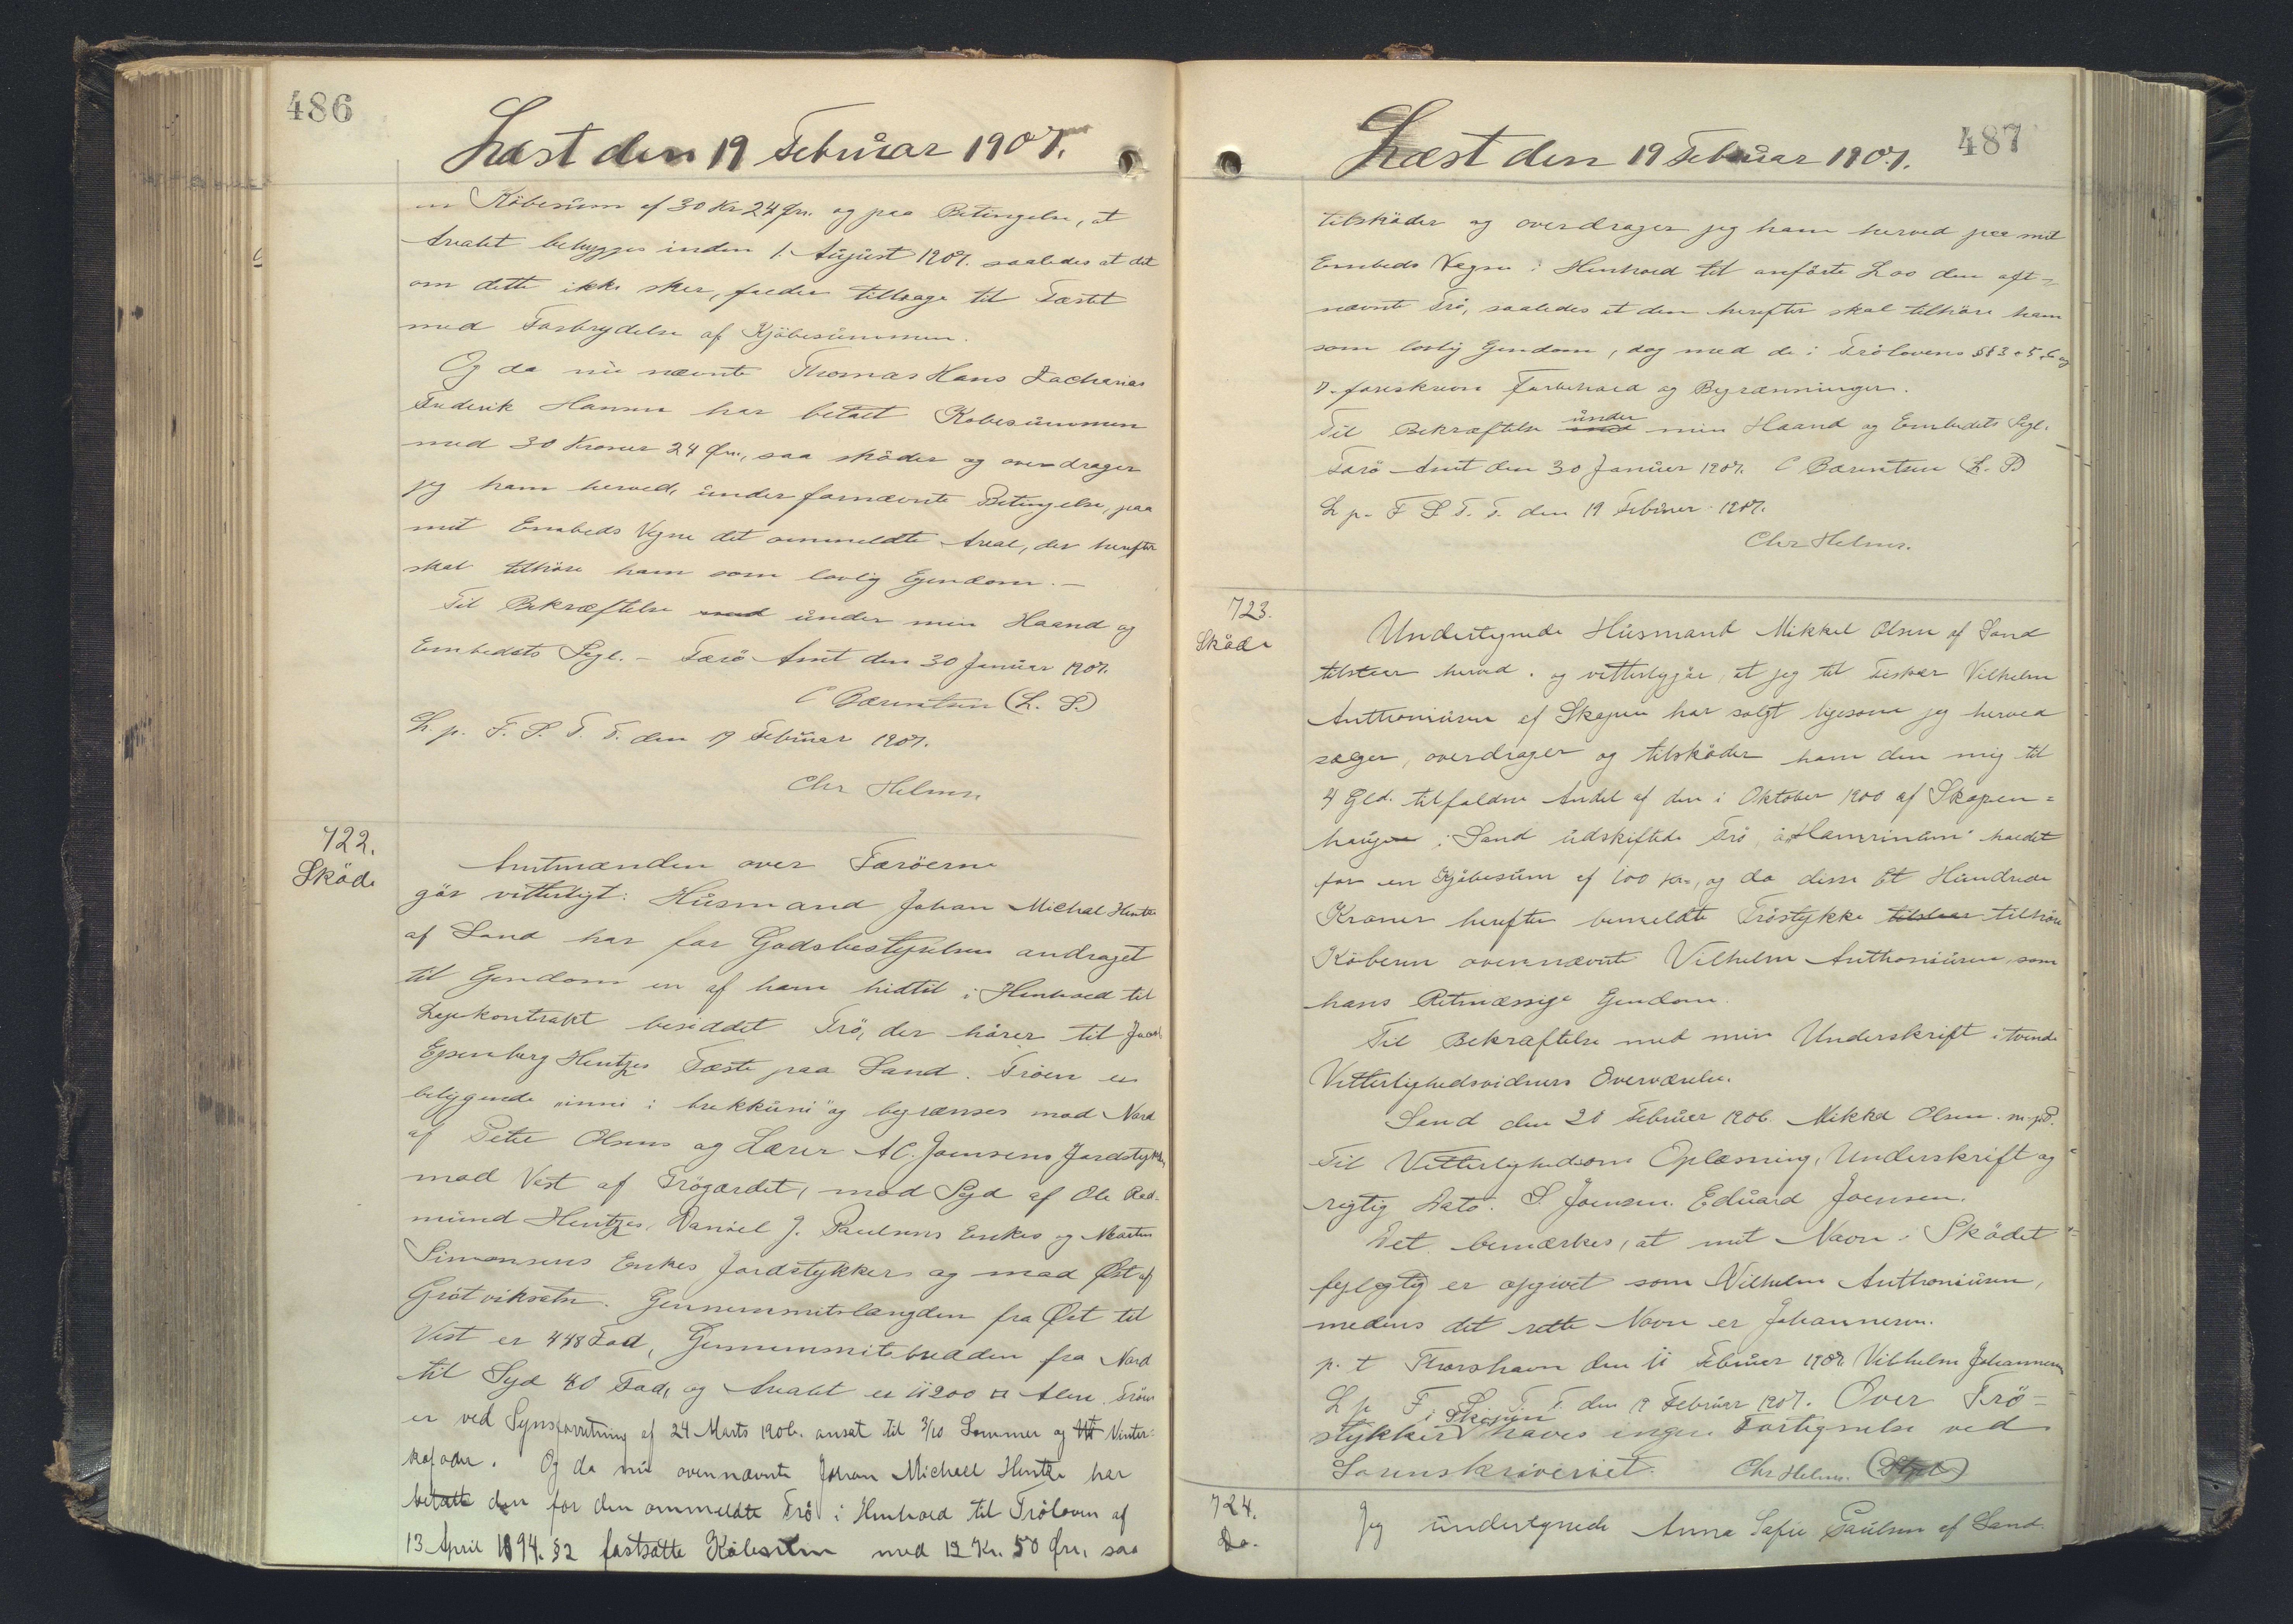 486
Læst den 19 Februar 1907.
en Köbesum af 30 Kr 24 Øre. og paa Betingelse, at
Arealet bebygges inden 1. August 1907. saaledes at det
om dette ikke sker, falder tilbage til Fæstet
med Fortrydelse af Kjöbesummen.
Og da nu nævnte Thomas Hans Zacharias
Frederik Hansen har betalt Kobesummen
med 30 Kroner 24 Øre., saa sköder og overdrager
jeg ham herved, under fornævnte Betingelse, paa
mit Embeds Vegne det ommeldte Areal, der herefter
skal tilhöre ham som lovlig Ejendom. –
Til Bekræftelse med under min Haand og
Embedets Segl. – Færö Amt den 30 Januar 1907.
C Bærentsen (L. S.)
L. p. F. S. T. T. den 19 Februar 1907.
Chr Helms.
722.
Sköde
Amtmanden over Færöerne
gör vitterligt: Husmand Johan Michal Hentze
af Sand har for Godsbestyrelsen andraget
til Ejendom en af ham hidtil i Henhold til
Lejekontrakt besiddet Trö, der hörer til Jacob
Espenberg Hentzes Fæste paa Sand. Tröen er
beliggende "inni i brekkuni" og begrænses mod Nord
af Peter Olsens og Lærer A C. Joensens Jordstykker,
mod Vest af Trögærdet, mod Syd af Ole Red-
mund Hentzes, Daniel J. Paulsens Enkes og Morten
Simonsens Enkes Jordstykker og mod Øst af
Grótviksætr. Gennemsnitslængden fra Øst til
Vest er 448 Fod, Gennemsnitsbredden fra Nord
til Syd 40 Fod, og Arealet er 11200 □ Alen. Tröen
er ved Synsforretning af 24 Marts 1906. ansat til 3/10 Sommer og Vinter-
kofoder. Og da nu ovennævnte Johan Michael Hentze har
betalt den for den ommeldte Trö i Henhold til Tröloven af
13 April 1894. §2 fastsatte Köbesum med 12 Kr. 50 Øre, saa
487
Læst den 19 Februar 1907.
tilsköder og overdrager jeg ham herved paa mit
Embeds Vegne i Henhold til anförte Lov den oft-
nævnte Trö, saaledes at den herefter skal tilhöre ham
som lovlig Ejendom, dog med de i Trölovens §§ 3 5. 6 og
7. foreskrevne Forbehold og Begrænsninger.
Til Bekræftelse med under min Haand og Embedets Segl.
Færö Amt den 30 Januar 1907. C Bærentsen (L. S)
L p. F S T. T. den 19 Februar 1907.
Chr Helms.
723.
Sköde
Undertegnede Husmand Mikkel Olsen af Sand
tilstaar herved og vitterliggör, at jeg til Fisker Vilhelm
Anthoniusen af Skopun har solgt ligesom jeg herved
sælger, overdrager og tilsköder ham den mig til
4 Gld. tilfaldne Andel af den i Oktober 1900 af Skopun-
haugen i Sand udskiftede Trö "á Hamrinum" kaldet
for en Kjöbesum af 100 Kr., og da disse Et Hundrede
Kroner herefter bemeldte Tröstykke tilstaar tilhöre
Köberen ovennævnte Vilhelm Anthoniusen som
hans Retmæssige Ejendom.
Til Bekræftelse med min Underskrift i tvende
Vitterlighedsvidners Overværelse.
Sand den 28 Februar 1906. Mikkel Olsen. m. p. P.
Til Vitterlighed om Oplæsning, Underskrift og
rigtig Dato. S. Joensen. Eduard Joensen.
Det bemærkes, at mit Navn i Sködet
fejlagtig er opgivet som Vilhelm Anthoniusen,
medens det rette Navn er Johannesen.
p. t Thorshavn den 11 Februar 1907. Vilhelm Johannesen
L p F. S. T. T. den 19 Februar 1907. Over Trö-
stykker i Skopun haves ingen Fortegnelse ved
Sorenskriveriet. Chr Helms.
724.
Do.
Jeg undertegnede Anna Sofie Paulsen af Sand